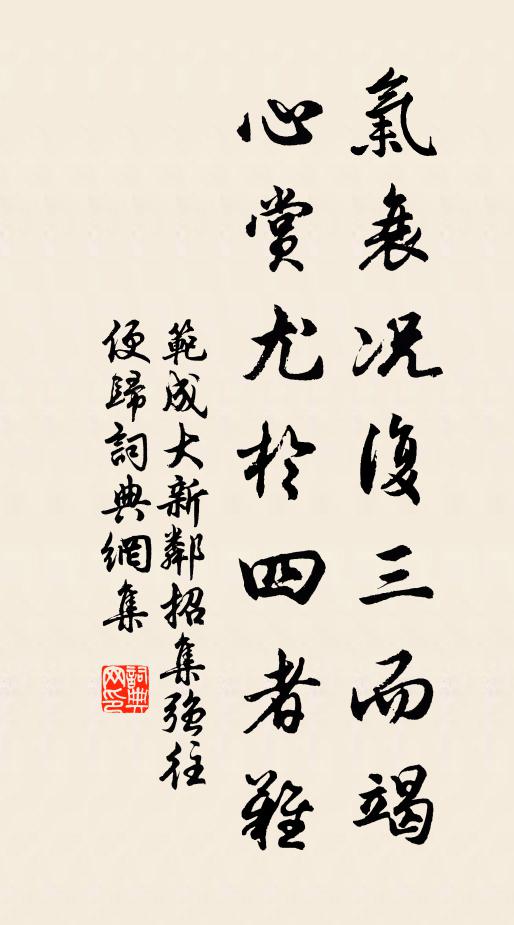 氣衰况復三而竭
心賞尤於四者難
範成大新鄰招集強往
便歸詞典網集
詞典网印